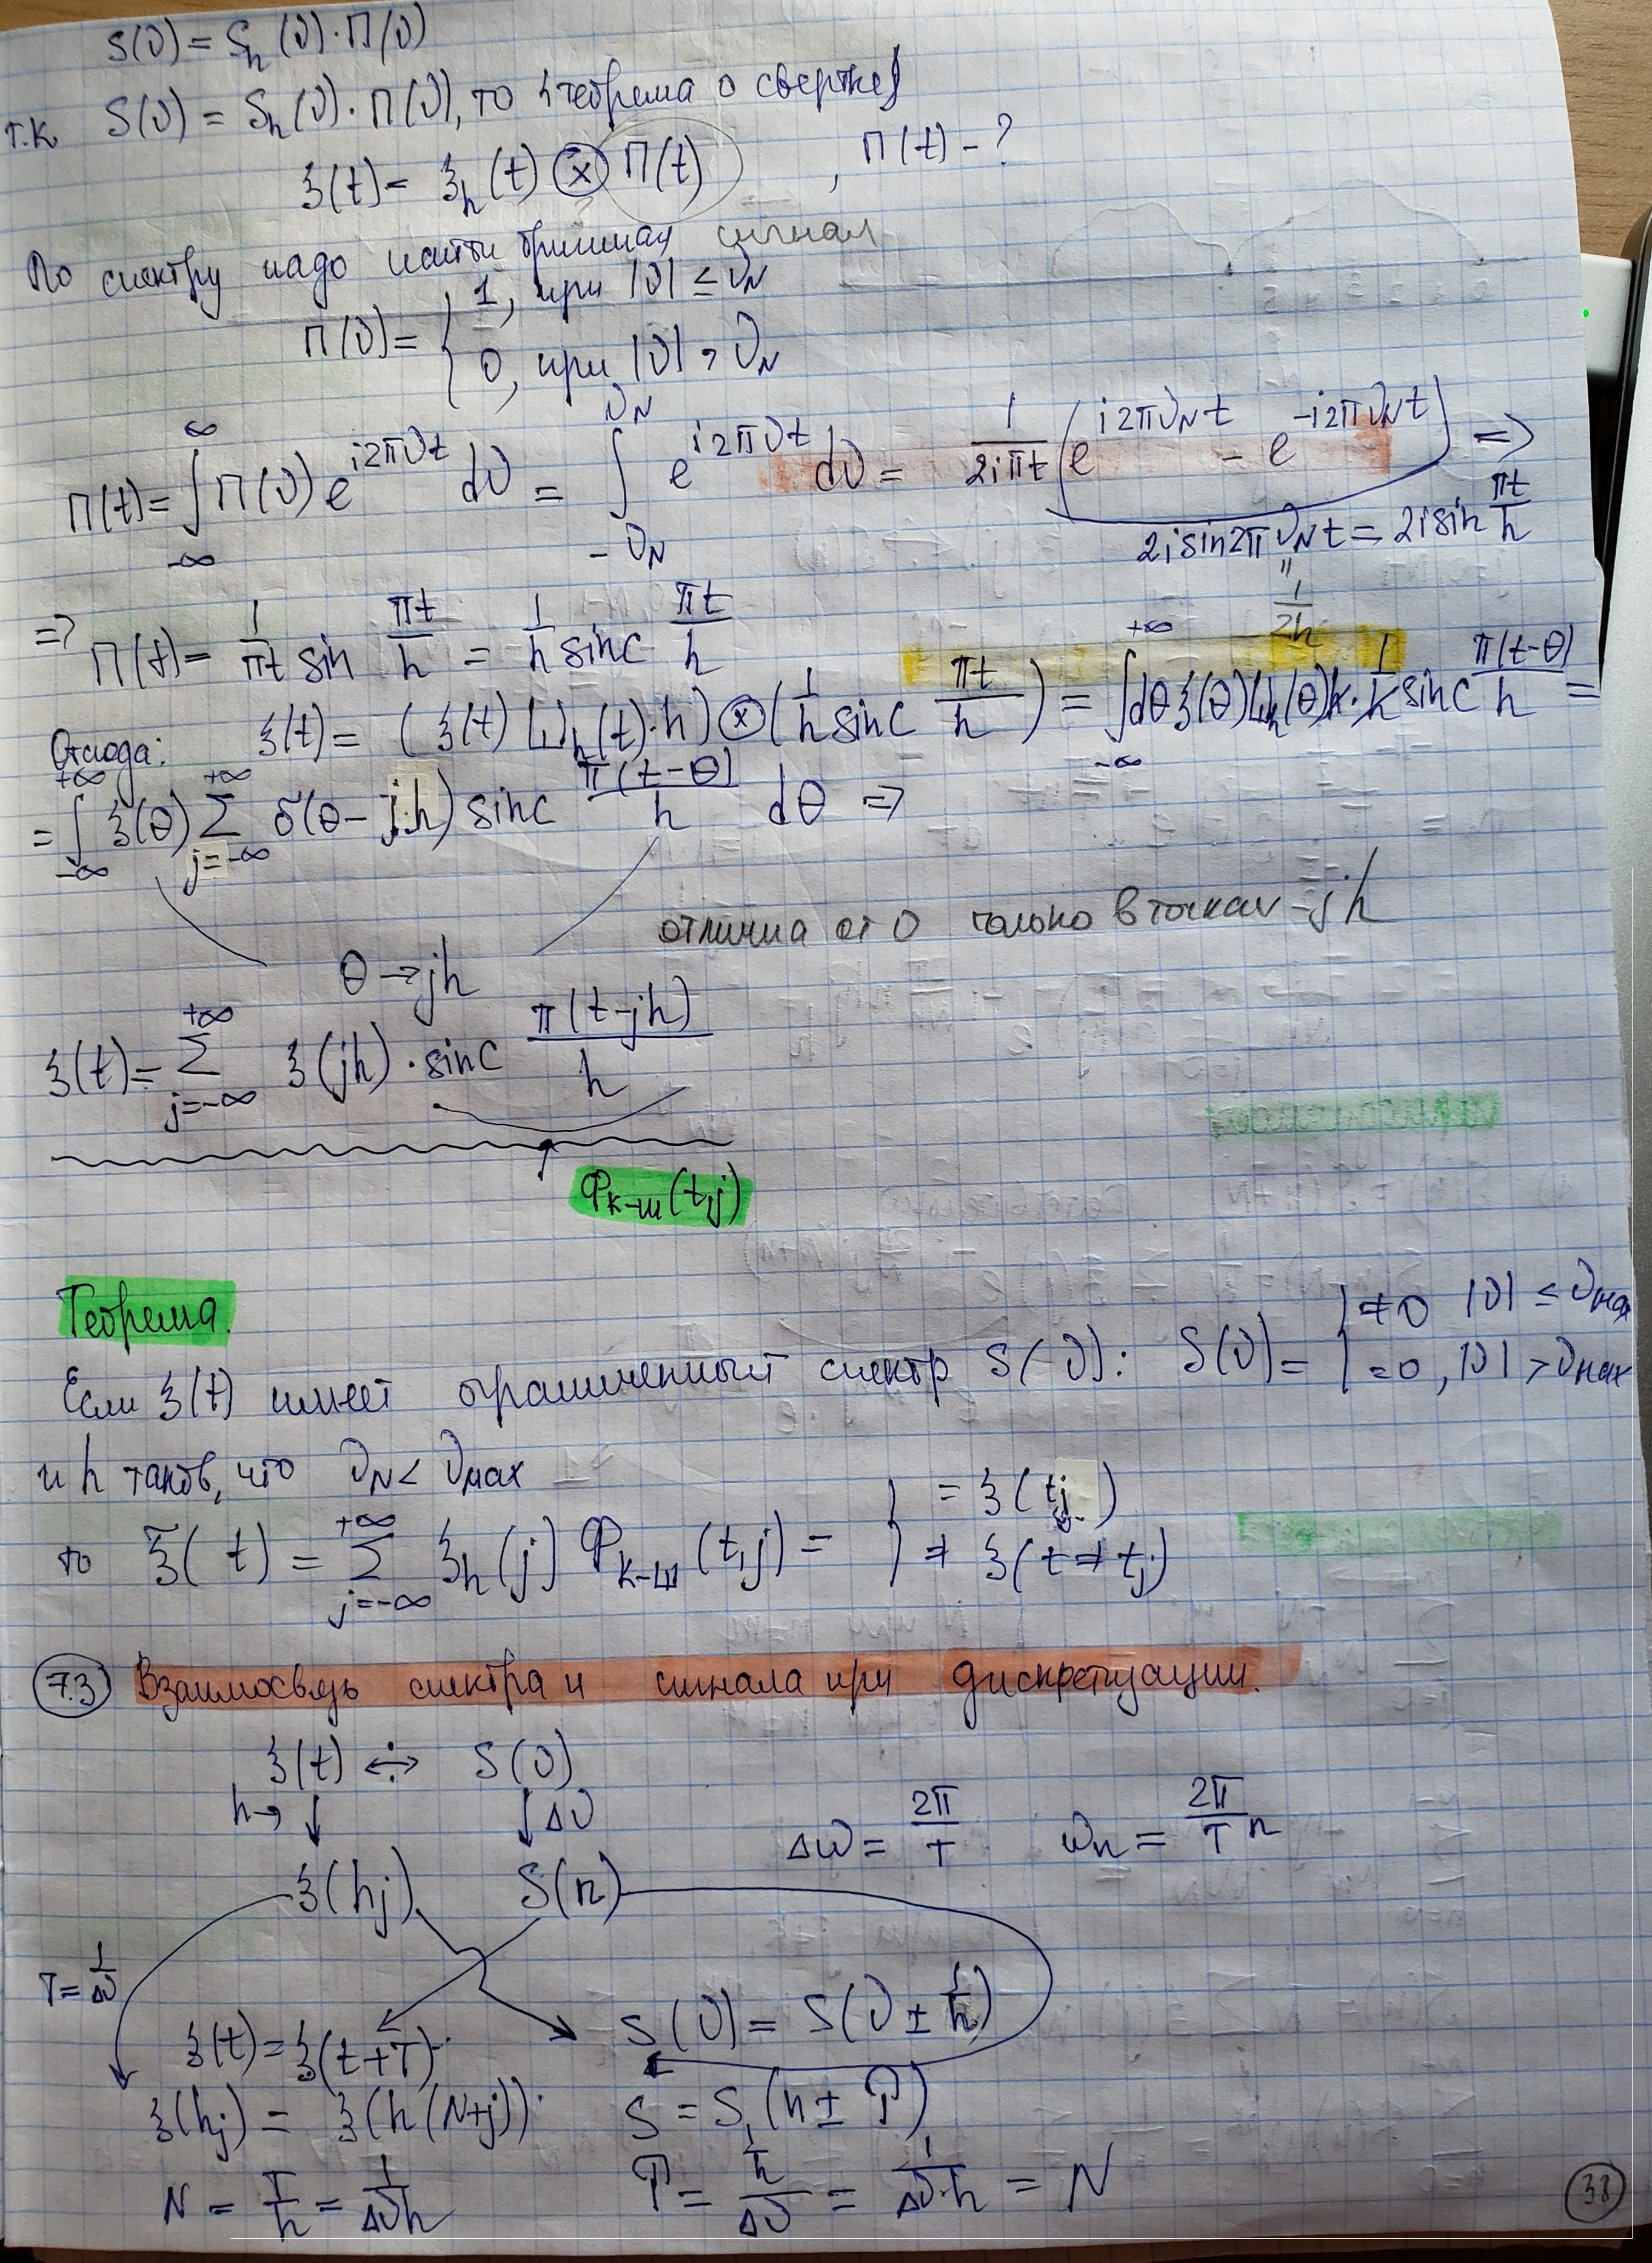 S(ν) = S_h(ν)·П(ν)
т.к. S(ν) = S_h(ν)·П(ν), то {теорема о свертке}
ξ(t) = ξ_h(t) ⊗ П(t) , П(t) - ?
По спектру надо найти сигнал
П(ν) = { 1, при |ν| ≤ ν_N
0, при |ν| > ν_N
П(t) = ∫_{-∞}^{∞} П(ν) e^{i2πνt} dν = ∫_{-ν_N}^{ν_N} e^{i2πνt} dν = 1/(2iπt) (e^{i2πν_N t} - e^{-i2πν_N t}) ⇒
2i sin 2π ν_N t = 2i sin πt/h
" 1/2h
⇒ П(t) = 1/πt sin πt/h = 1/h sinc πt/h
Отсюда: ξ(t) = (ξ(t) Ш_h(t)·h) ⊗ (1/h sinc πt/h) = ∫_{-∞}^{+∞} dθ ξ(θ) Ш_h(θ) h · 1/h sinc π(t-θ)/h =
= ∫_{-∞}^{+∞} ξ(θ) Σ_{j=-∞}^{+∞} δ(θ - j·h) sinc π(t-θ)/h dθ ⇒
отлична от 0 только в точках - jh
θ → jh
ξ(t) = Σ_{j=-∞}^{+∞} ξ(jh) · sinc π(t-jh)/h
Φ_{К-Ш}(t,j)
Теорема.
Если ξ(t) имеет ограниченный спектр S(ν): S(ν) = { ≠0 |ν| ≤ ν_max
=0, |ν| > ν_max
и h таков, что ν_N < ν_max
то ξ̃(t) = Σ_{j=-∞}^{+∞} ξ_h(j) Φ_{К-Ш}(t,j) = { = ξ(t_j)
≠ ξ(t ≠ t_j)
7.3 Взаимосвязь спектра и сигнала при дискретизации.
ξ(t) ↔ S(ν)
h → ↓ ↓ Δν
Δω = 2π/T ω_n = 2π/T n
ξ(hj) S(n)
T = 1/Δν
ξ(t) = ξ(t+T) S(ν) = S(ν ± 1/h)
ξ(hj) = ξ(h(N+j)) S = S(n ± P)
N = T/h = 1/Δνh P = (1/h)/Δν = 1/Δν·h = N
38